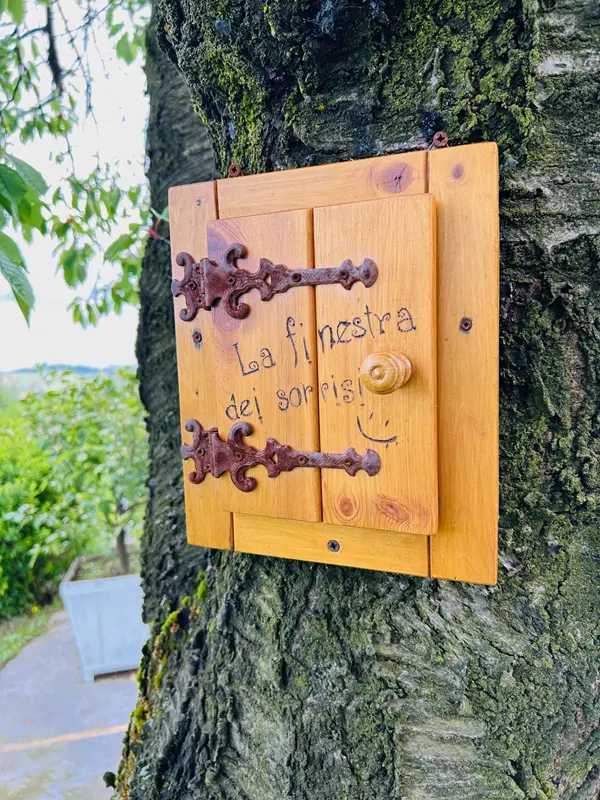 La finestra
dei sorrisi